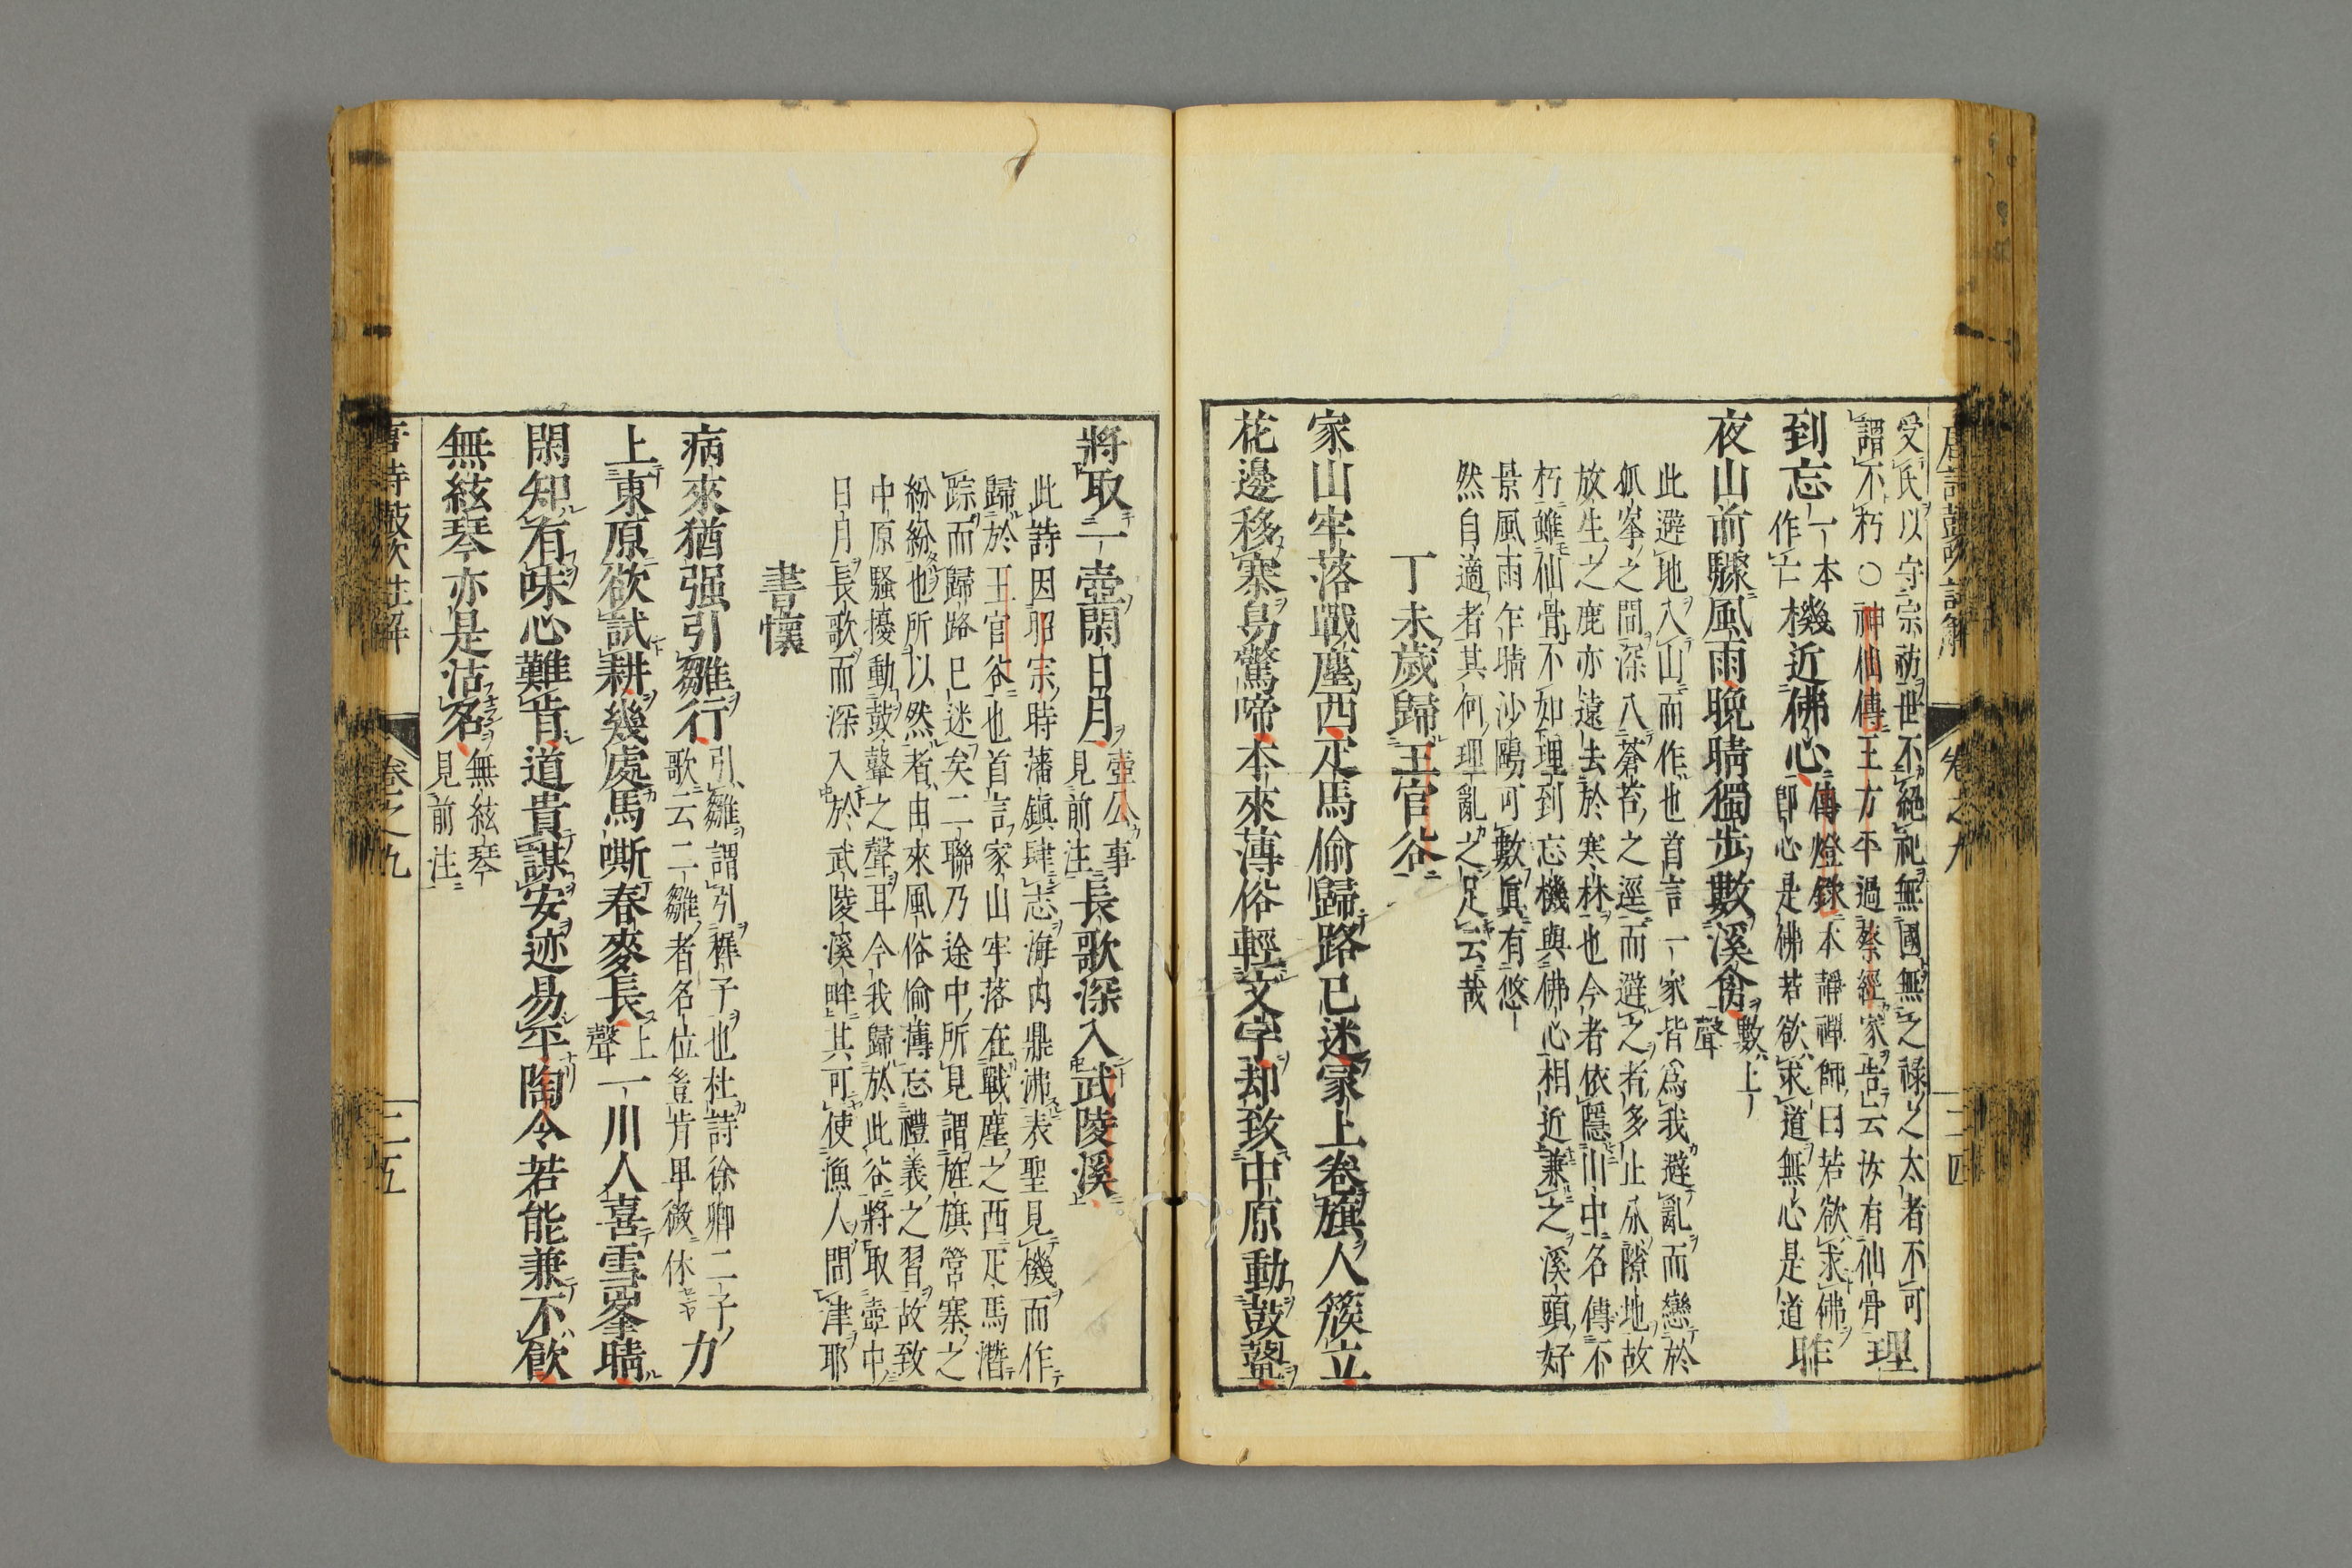 唐詩鼓吹註解 卷之九 三四
受氏以守宗祊世不絕祀無國無之祿之太者不可
謂不朽○神仙傳王方平過蔡經家告云汝有仙骨 理
到忘一本作亡機近佛心傳燈錄本靜禪師曰若欲求佛即心是佛若欲求道無心是道 昨
夜山前驟風雨晚晴獨步數溪禽數上聲
此避地入山而作也首言一家皆為我避亂而戀於
孤峯之間深入蒼苔之逕而避之者多止於隙地故
放生之鹿亦遠去於寒林也今者依隱川中名傳不
朽雖仙骨不如理到忘機與佛心相近兼之溪頭好
景風雨乍晴沙鷗可數眞有悠
然自適者其何理亂之足云哉
丁未歲歸王官谷
家山牢落戰塵西疋馬偷歸路已迷冡上卷旗人簇立
花邊移寨鳥驚啼本來薄俗輕文字却致中原動鼓鼙
將取一壺閑日月壺公事見前注長歌深入武陵溪
此詩因昭宗時藩鎮肆志海內鼎沸表聖見機而作
歸於王官谷也首言家山牢落在戰塵之西疋馬潛
踪而歸路已迷矣二聯乃途中所見謂旌旗營寨之
紛紛也所以然者由來風俗偷薄忘禮義之習故致
中原騷擾動鼓鼙之聲耳今我歸於此谷將取壺中
日月長歌而深入於武陵溪畔其可使漁人問津耶
書懷
病來猶强引雛行引雛謂引穉子也杜詩徐卿二子歌云二雛者名位豈肯卑微休力
上東原欲試耕幾處馬嘶春麥長上聲一川人喜雪峯晴
閑知有味心難肯道貴謀安迹易平陶令若能兼不飲
無絃琴亦是沽名無絃琴見前注
唐詩鼓吹註解 卷之九 三五